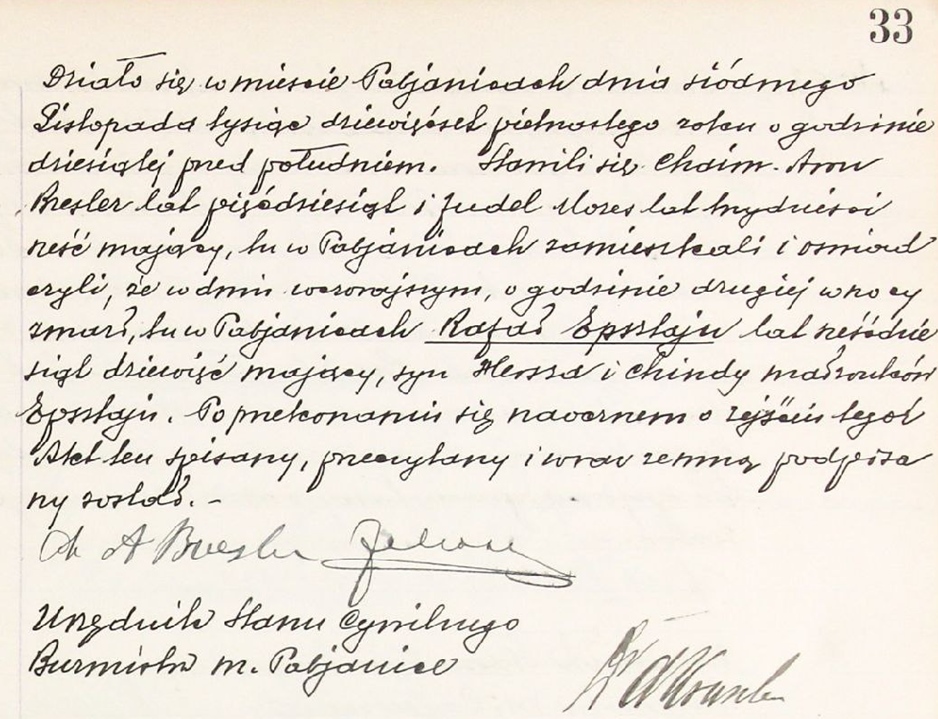 33
Działo się w mieście Pabjanicach dnia siódmego
Listopada tysiąc dziewięćset piętnastego roku o godzinie
dziesiątej przed południem. Stawili się Chaim-Aron
Bresler lat pięćdziesiąt i Judel Mozes lat trzydzieści
sześć mający, tu w Pabjanicach zamieszkali i oświad
czyli, że w dniu wczorajszym, o godzinie drugiej w nocy
zmarł, tu w Pabjanicach Rafał Epsztajn lat sześćdzie
siąt dziewięć mający, syn Hersza i Chindy małżonków
Epsztajn. Po przekonaniu się naocznem o zejściu tegoż
Akt ten spisany, przeczytany i wraz zemną podpisa
ny został. -
Ch A Bresler
Urzędnik Stanu Cywilnego
Burmistrz m. Pabjanice